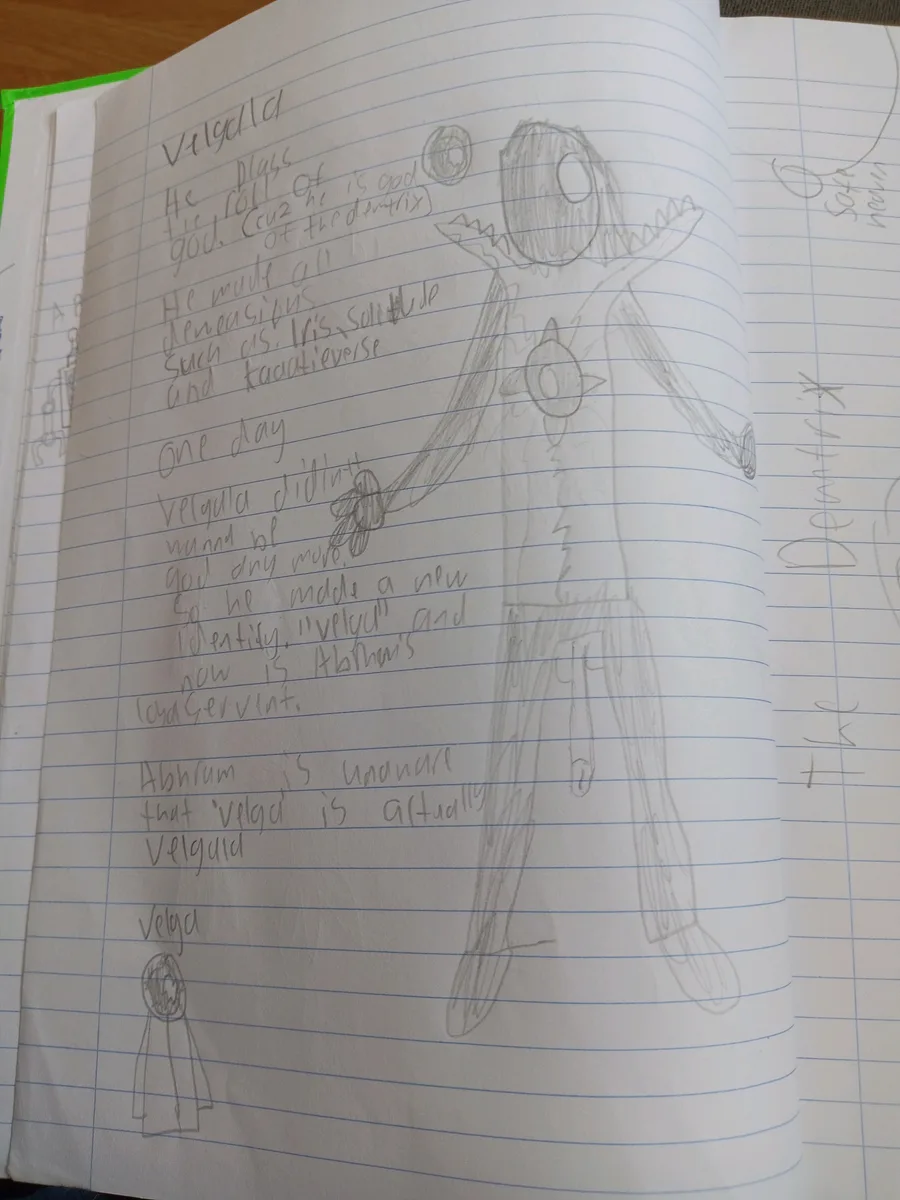 Velgala
He plass
the roll of
god. (cuz he is god
of the demtrix)
He made all
demensions
such as. Iris, solitude
and kaaatieverse
One day
Velgala didint
wannd be
god any more.
So he made a new
identify. "velga" and
now is Abhram's
loyal servint.
Abhram is unaware
that "velga" is actually
Velgala
Velga
safe
haven
The Demtrix